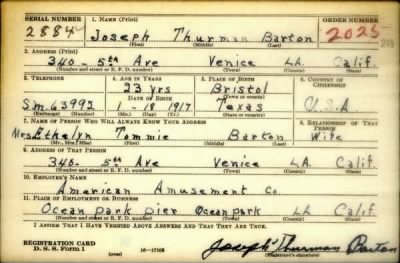 SERIAL NUMBER 1. NAME (Print) ORDER NUMBER
2884 Joseph Thurman Barton 2025
(First) (Middle) (Last)
2. ADDRESS (Print)
340 - 5th Ave Venice LA. Calif.
(Number and street or R. F. D. number) (Town) (County) (State)
3. TELEPHONE 4. AGE IN YEARS 5. PLACE OF BIRTH 6. COUNTRY OF CITIZENSHIP
23 yrs Bristol
DATE OF BIRTH
S.M. 63992 1-18-1917 Texas U.S.A
(Exchange) (Number) (Mo.) (Day) (Yr.) (State or country)
7. NAME OF PERSON WHO WILL ALWAYS KNOW YOUR ADDRESS 8. RELATIONSHIP OF THAT PERSON
Mrs Ethelyn Tommie Barton Wife
(Mr., Mrs., Miss) (First) (Middle) (Last)
9. ADDRESS OF THAT PERSON
340 - 5th Ave Venice LA Calif
(Number and street or R. F. D. number) (Town) (County) (State)
10. EMPLOYER'S NAME
American Amusement Co.
11. PLACE OF EMPLOYMENT OR BUSINESS
Ocean park pier Ocean park LA Calif.
(Number and street or R. F. D. number) (Town) (County) (State)
I AFFIRM THAT I HAVE VERIFIED ABOVE ANSWERS AND THAT THEY ARE TRUE.
REGISTRATION CARD
D. S. S. Form 1 (over) 16-17105 Joseph Thurman Barton
(Registrant's signature)